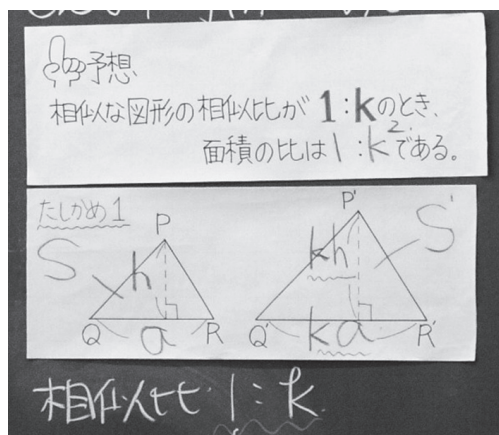 予想
相似な図形の相似比が 1:kのとき、
面積の比は1:k²である。
たしかめ1
P
S
h
Q
a
R
P'
S'
kh
Q'
ka
R'
相似比 1:k